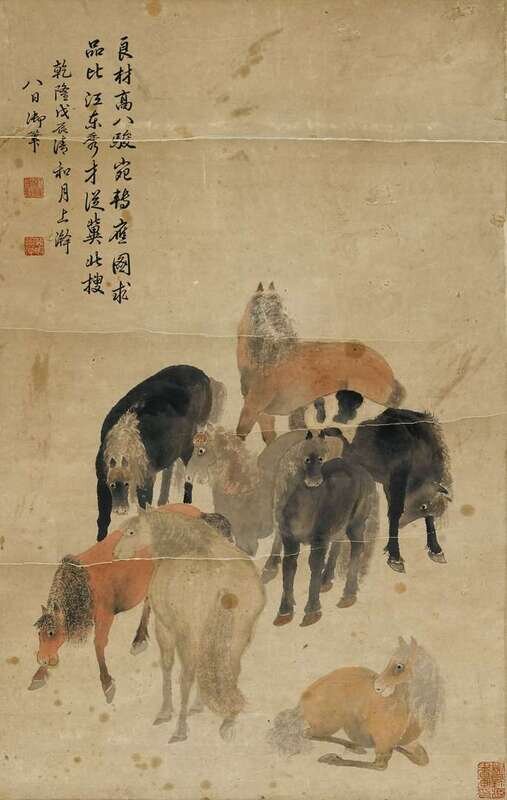 良材高八駿宛轉應國求
品比江东秀才從冀北搜
乾隆戊辰清和月上澣
八日御筆